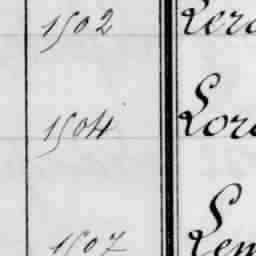 1502 Lero
1504 Lore
1507 Lem